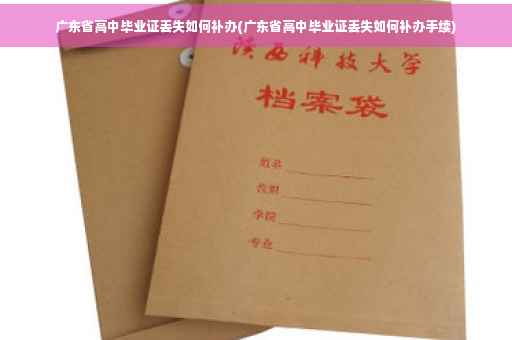 广东省高中毕业证丢失如何补办(广东省高中毕业证丢失如何补办手续)
陕西科技大学
档案袋
学院
专业